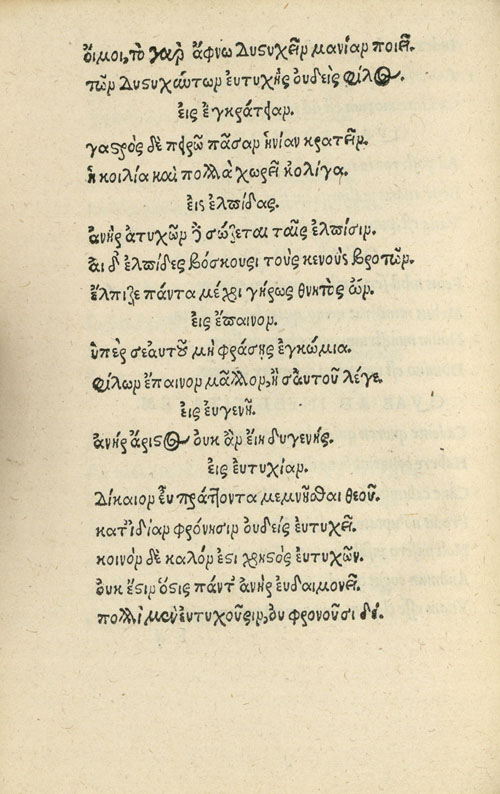 οἴμοι, τὸ γὰρ ἄφνω δυστυχεῖν μανίαν ποιεῖ.
τῶν δυστυχούντων ἐυτυχὴς ὀυδεὶς φίλος.
ἐις ἐγκράτειαν.
γαστρὸς δὲ πειρῶ πᾶσαν ἡνίαν κρατεῖν.
ἡ κοιλία καὶ πολλὰ χωρεῖ κ'ολίγα.
ἐις ἐλπίδας.
ἀνὴρ ἀτυχῶν σώζεται ταῖς ἐλπίσιν.
ἁι δ' ἐλπίδες βόσκουσι τοὺς κενοὺς βροτῶν.
ἔλπιζε πάντα μέχρι γήρως θνητὸς ὤν.
ἐις ἔπαινον.
ὑπὲρ σεαυτοῦ μὴ φράσῃς ἐγκώμια.
φίλων ἔπαινον μᾶλλον, ἢ σαυτοῦ λέγε.
ἐις ἐυγενῆ.
ἀνὴρ ἄριστος ὀυκ ἂν ἔιη δυγενής.
ἐις ἐυτυχίαν.
Δίκαιον ἐυ πράττοντα μεμνῆσθαι θεοῦ.
κατ' ἰδίαν φρόνησιν ὀυδεὶς ἐυτυχεῖ.
κοινὸν δὲ καλόν ἐστι χρηστὸς ἐυτυχῶν.
ὀυκ ἔστιν ὅστις πάντ' ἀνὴρ ἐυδαιμονεῖ.
πολλοὶ μὲν ἐυτυχοῦσιν, ὀυ φρονοῦσι δέ.